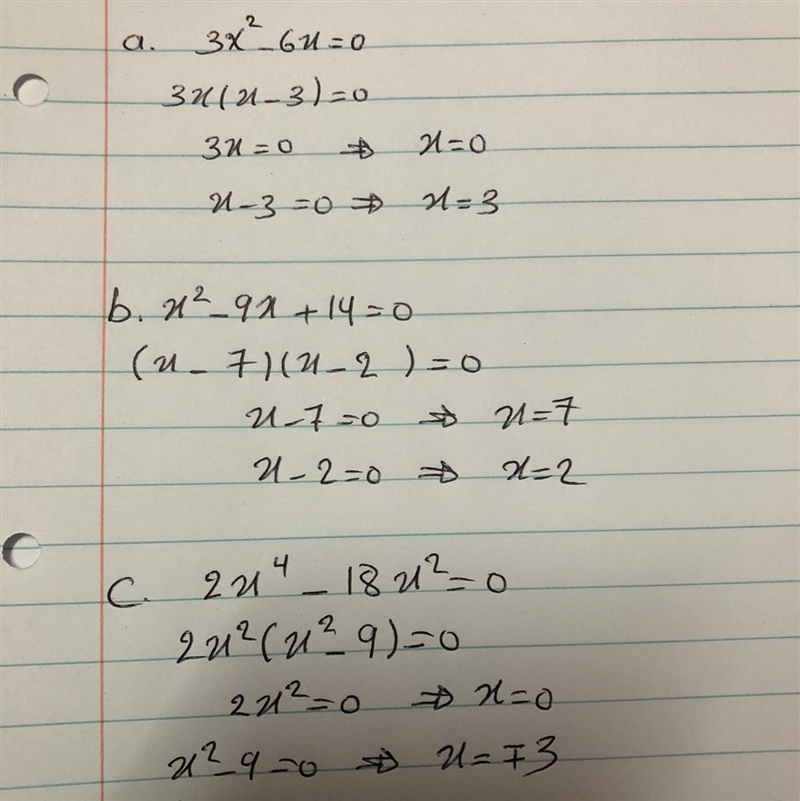 a. 3x² - 6x = 0
3x(x - 3) = 0
3x = 0 ⇒ x = 0
x - 3 = 0 ⇒ x = 3
b. x² - 9x + 14 = 0
(x - 7)(x - 2) = 0
x - 7 = 0 ⇒ x = 7
x - 2 = 0 ⇒ x = 2
C. 2x⁴ - 18x² = 0
2x²(x² - 9) = 0
2x² = 0 ⇒ x = 0
x² - 9 = 0 ⇒ x = ∓3